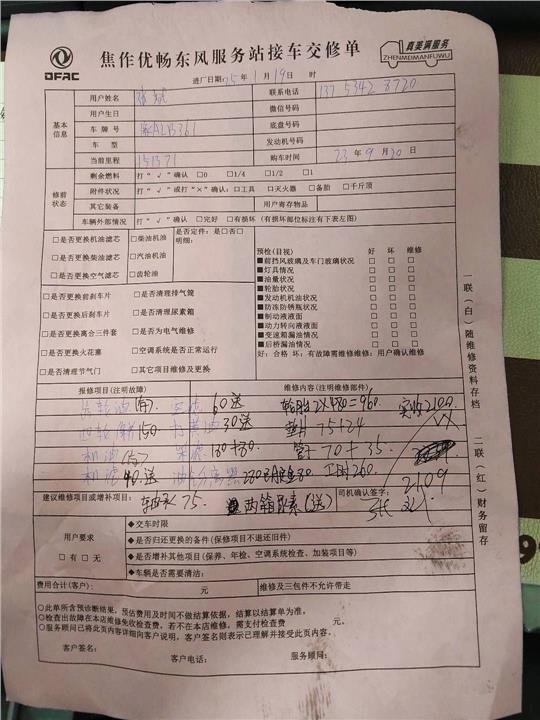 DFAC
焦作优畅东风服务站接车交修单
真美满服务
ZHENMEIMANFUWU
进厂日期:25年1月19日 时
基本信息
用户姓名
联系电话 137 5342 8720
用户生日
微信号码
车牌号
底盘号码
车型
发动机号码
当前里程 151371
购车时间 23年9月30日
修前状态
剩余燃料 打“√”确认 □0 □1/4 □1/2 □1
附件状况 打“√”或打“×”确认:□工具 □灭火器 □备胎 □千斤顶
其它装备
用户寄存物品
车辆外部情况 打“√”确认 □完好 □有损坏(有损坏部位标注有下表左图)
□是否更换机油滤芯 □柴油机油
□是否更换柴油滤芯 □汽油机油
□是否更换空气滤芯 □齿轮油
是否定件:是□否□
明细:
□是否更换前刹车片 □是否清理排气筒
□是否更换后刹车片 □是否清理尿素箱
□是否更换离合三件套 □是否为电气维修
□是否更换火花塞 □空调系统是否正常运行
□是否清理节气门 □其它项目维修及更换
预检(目视) 好 坏 维修
■前挡风玻璃及车门玻璃状况 □ □ □
■灯具情况 □ □ □
■油量状况 □ □ □
■轮胎状况 □ □ □
■发动机机油状况 □ □ □
■防冻防锈瓶状况 □ □ □
■制动液液面 □ □ □
■动力转向液液面 □ □ □
■变速箱漏油情况 □ □ □
■后桥漏油情况 □ □ □
好:合格 坏:有故障需维修维修:用户确认维修
报修项目(注明故障)
维修内容(注明维修部件)
60送 轮胎2X480=960. 实收2100
150 30送 垫片75+24
机油 180+80 管子70+35
机滤40送 油分离器 工时260.
2109
建议维修项目或增补项目:
轴承75. 两箱尿素(送)
司机确认签字:
用户要求
□有□无
◆交车时限
◆是否归还更换的备件(保修项目不退还旧件)
◆是否增补其他项目(保养、年检、空调系统检查、加装项目等)
◆车辆是否需要清洁:
费用合计(客户): 元
维修及三包件不允许带走
○此单所含预诊断结果,预估费用及时间不做结算依据,结算以结算单为准。
○检查出故障在本店维修免收检查费,若不在本店维修,需支付检查费 元。
○服务顾问已将此页内容详细向客户说明,客户签名则表示已理解并接受此页内容。
客户签名:
客户电话:
服务顾问:
一联(白)随维修资料存档
二联(红)财务留存